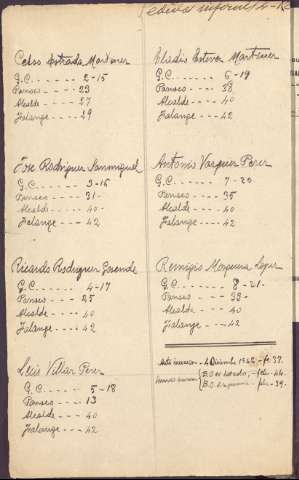 Celso Estrada Martinez
G.C. - - - - - 2-15
Panseo - - - - 23
Alcalde - - - - 27
Falange - - - - 29
José Rodriguez Sanmiguel
G.C. - - - - - 3-16
Panseo - - - - 31
Alcalde - - - - 40
Falange - - - - 42
Ricardo Rodriguez
G.C. - - - - - 4-17
Panseo - - - - 25
Alcalde - - - - 40
Falange - - - - 42
Luis Villar Perez
G.C. - - - - - 5-18
Panseo - - - - 13
Alcalde - - - - 40
Falange - - - - 42
Eladio Estevez Martinez
G.C. - - - - - 6-19
Panseo - - - - 38
Alcalde - - - - 40
Falange - - - - 42
Antonio Vazquez Perez
G.C. - - - - - 7-20
Panseo - - - - 35
Alcalde - - - - 40
Falange - - - - 42
Remigio
G.C. - - - - - 8-21
Panseo - - - - 33
Alcalde - - - - 40
Falange - - - - 42
4 Diciembre - 37.
B.O. - 44.
B.O. - 39.